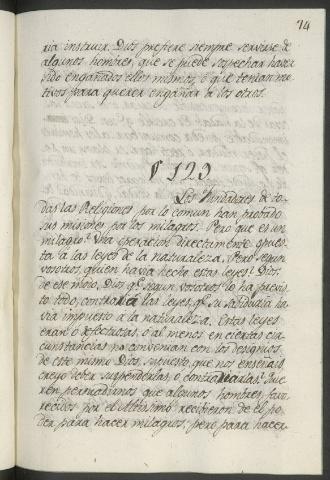 74
ria instruir. Dios prefiere siempre servirse de
algunos hombres, que se puede sospechar haver
sido engañados ellos mismos, ó que tenian mo-
tivos para querer engañar a los otros.
§ 123
Los Fundadores de to-
das las Religiones por lo comun han probado
sus misiones por los milagros. Pero que es un
milagro? Una operacion directamente opues-
ta à las leyes de la naturaleza. Pero segun
vosotros, quien havia hecho estas leyes? Dios.
de ese modo, Dios q.e segun vosotros lo ha previs-
to todo, contraría las leyes, q.e su sabiduria ha-
via impuesto a la naturaleza. Estas leyes
eran ó defectuosas, ó al menos en ciertas cir-
cunstancias no convenian con los designios
de este mismo Dios, supuesto que nos enseñais
creyo deber suspenderlas, ó contrariarlas. Quie-
ren persuadirnos que algunos hombres, favo-
recidos por el Altisimo recibieron de el po-
der para hacer milagros; pero para hacer